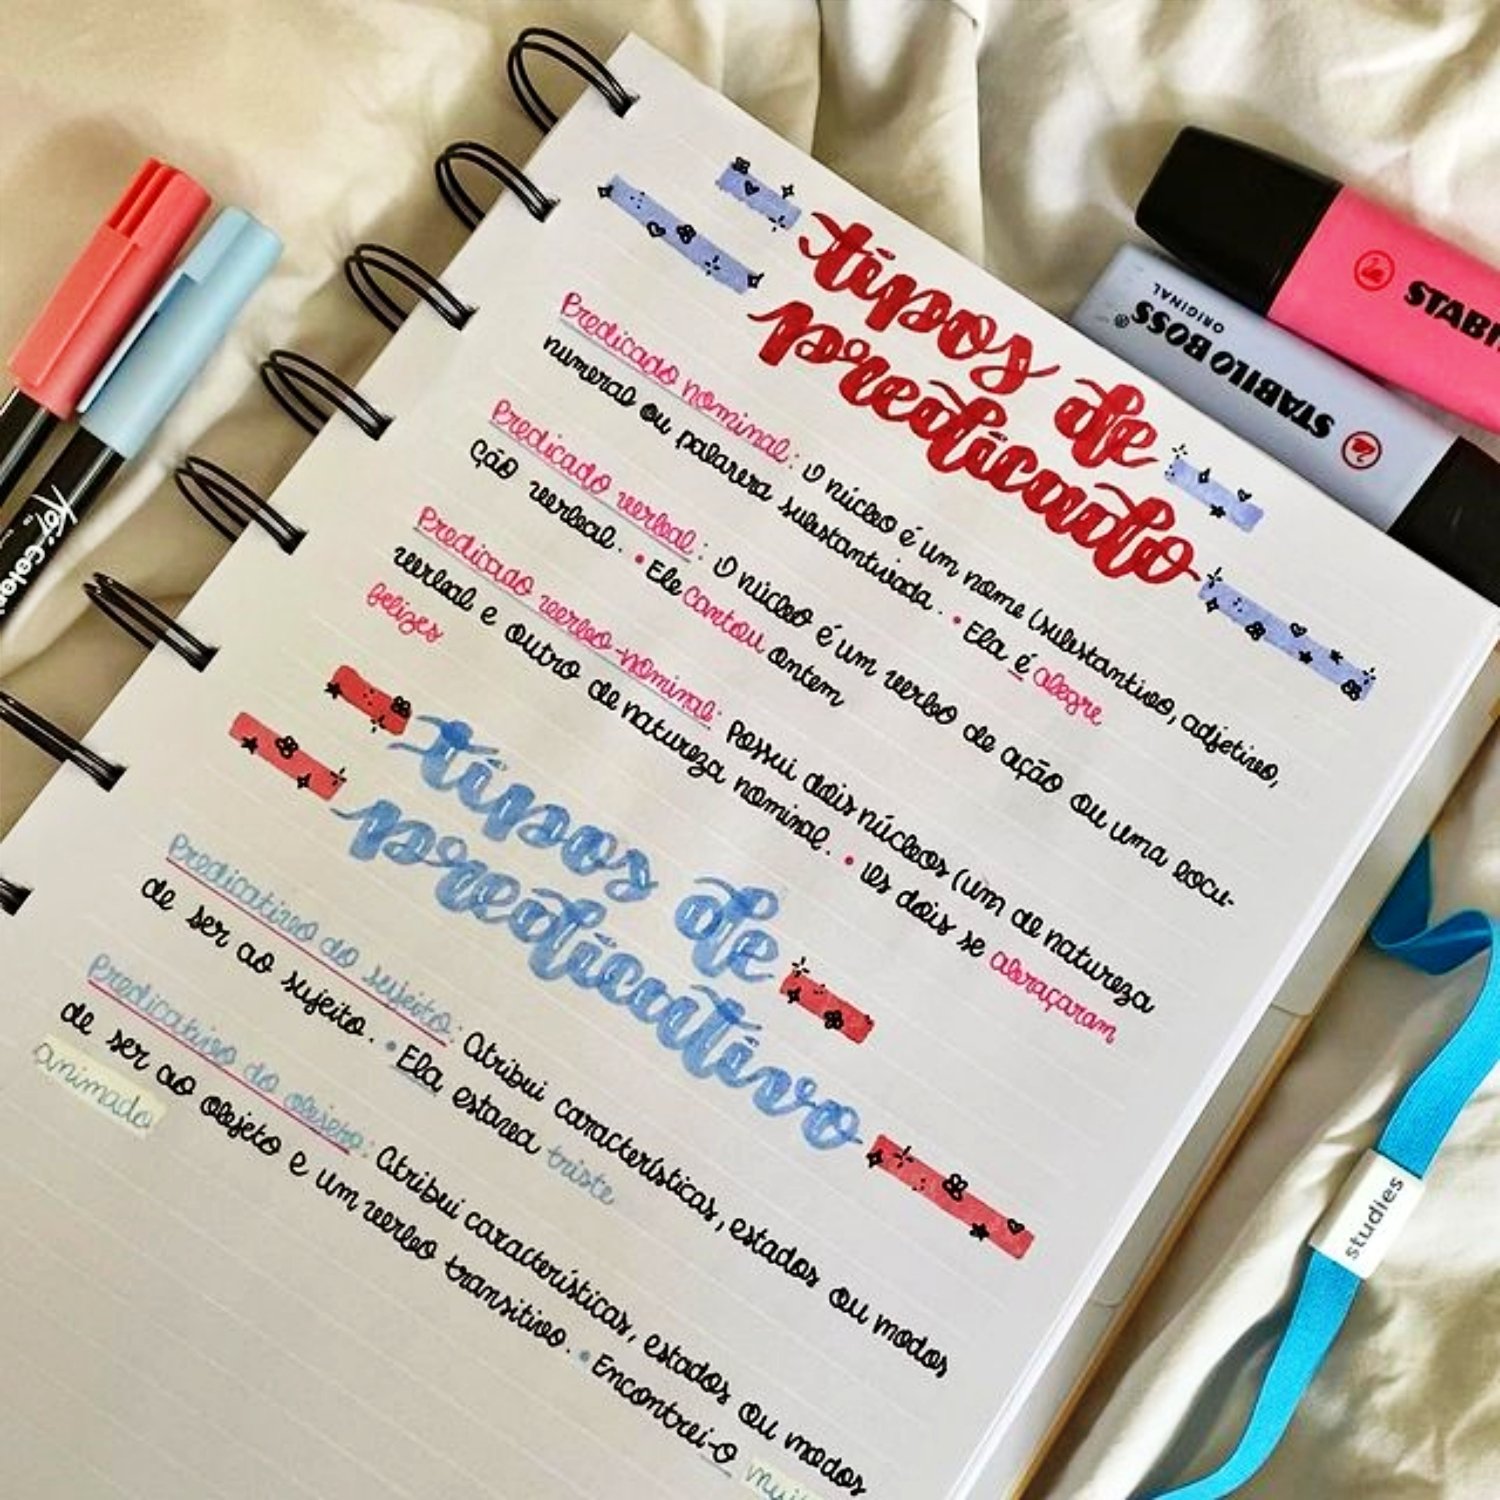 tipos de
predicado
Predicado nominal: O núcleo é um nome (substantivo, adjetivo,
numeral ou palavra substantivada. • Ela é alegre
Predicado verbal: O núcleo é um verbo de ação ou uma locu-
ção verbal. • Ele cantou ontem
Predicado verbo-nominal: Possui dois núcleos (um de natureza
verbal e outro de natureza nominal. • Os dois se abraçaram
felizes
tipos de
predicativo
Predicativo do sujeito: Atribui características, estados ou modos
de ser ao sujeito. • Ela estava triste
Predicativo do objeto: Atribui características, estados ou modos
de ser ao objeto e um verbo transitivo. • Encontrei-o
animado
STABILO BOSS
ORIGINAL
studies